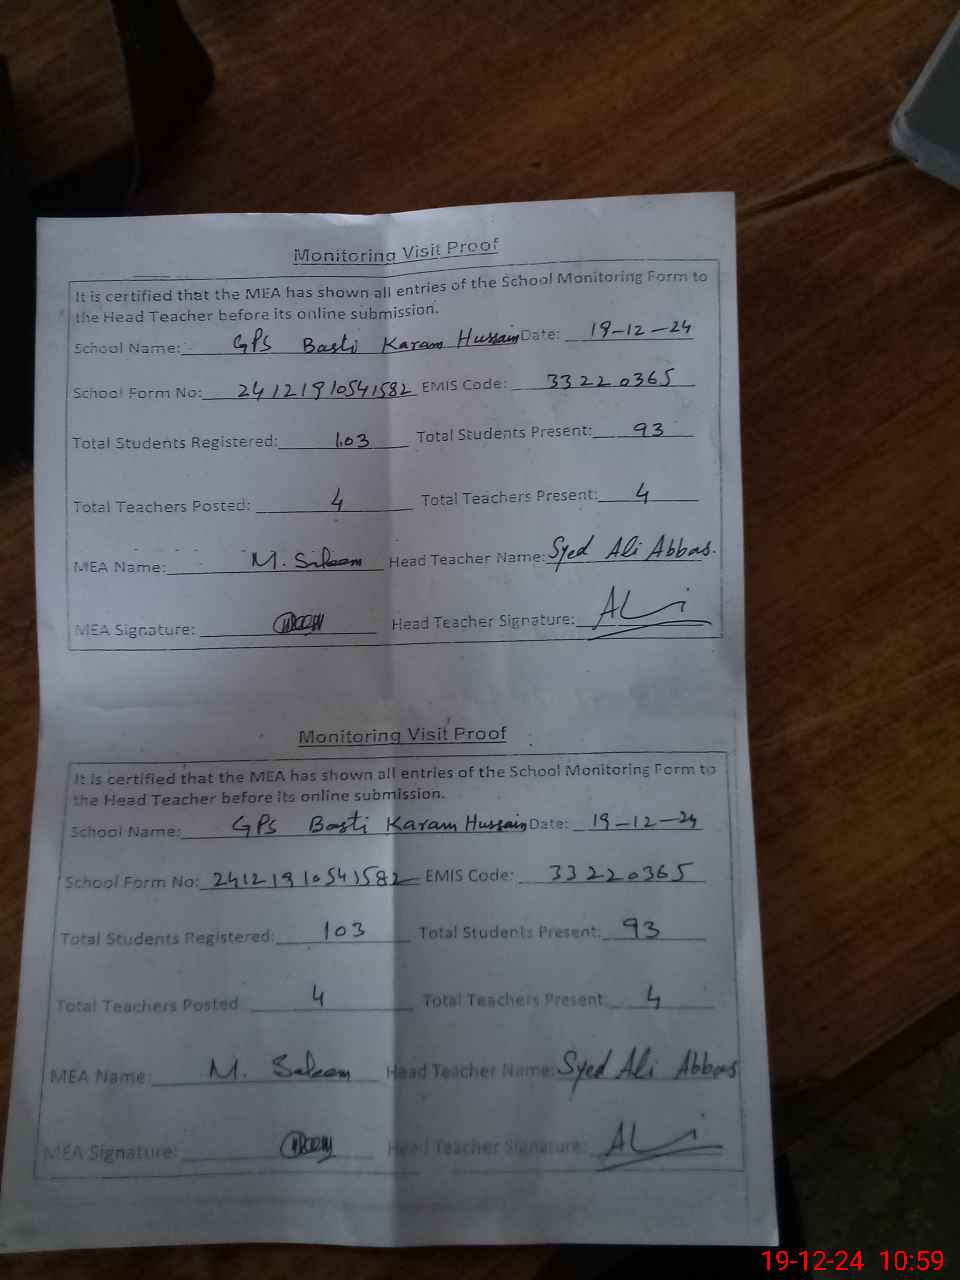 Monitoring Visit Proof
It is certified that the MEA has shown all entries of the School Monitoring Form to
the Head Teacher before its online submission.
School Name: GPS Basti Karam Hussain Date: 19-12-24
School Form No: 24121910541582 EMIS Code: 33220365
Total Students Registered: 103 Total Students Present: 93
Total Teachers Posted: 4 Total Teachers Present: 4
MEA Name: M. Saleem Head Teacher Name: Syed Ali Abbas.
MEA Signature: Head Teacher Signature: ALi
Monitoring Visit Proof
It is certified that the MEA has shown all entries of the School Monitoring Form to
the Head Teacher before its online submission.
School Name: GPS Basti Karam Hussain Date: 19-12-24
School Form No: 24121910541582 EMIS Code: 33220365
Total Students Registered: 103 Total Students Present: 93
Total Teachers Posted 4 Total Teachers Present: 4
MEA Name: M. Saleem Head Teacher Name: Syed Ali Abbas
MEA Signature: Head Teacher Signature: ALi
19-12-24 10:59